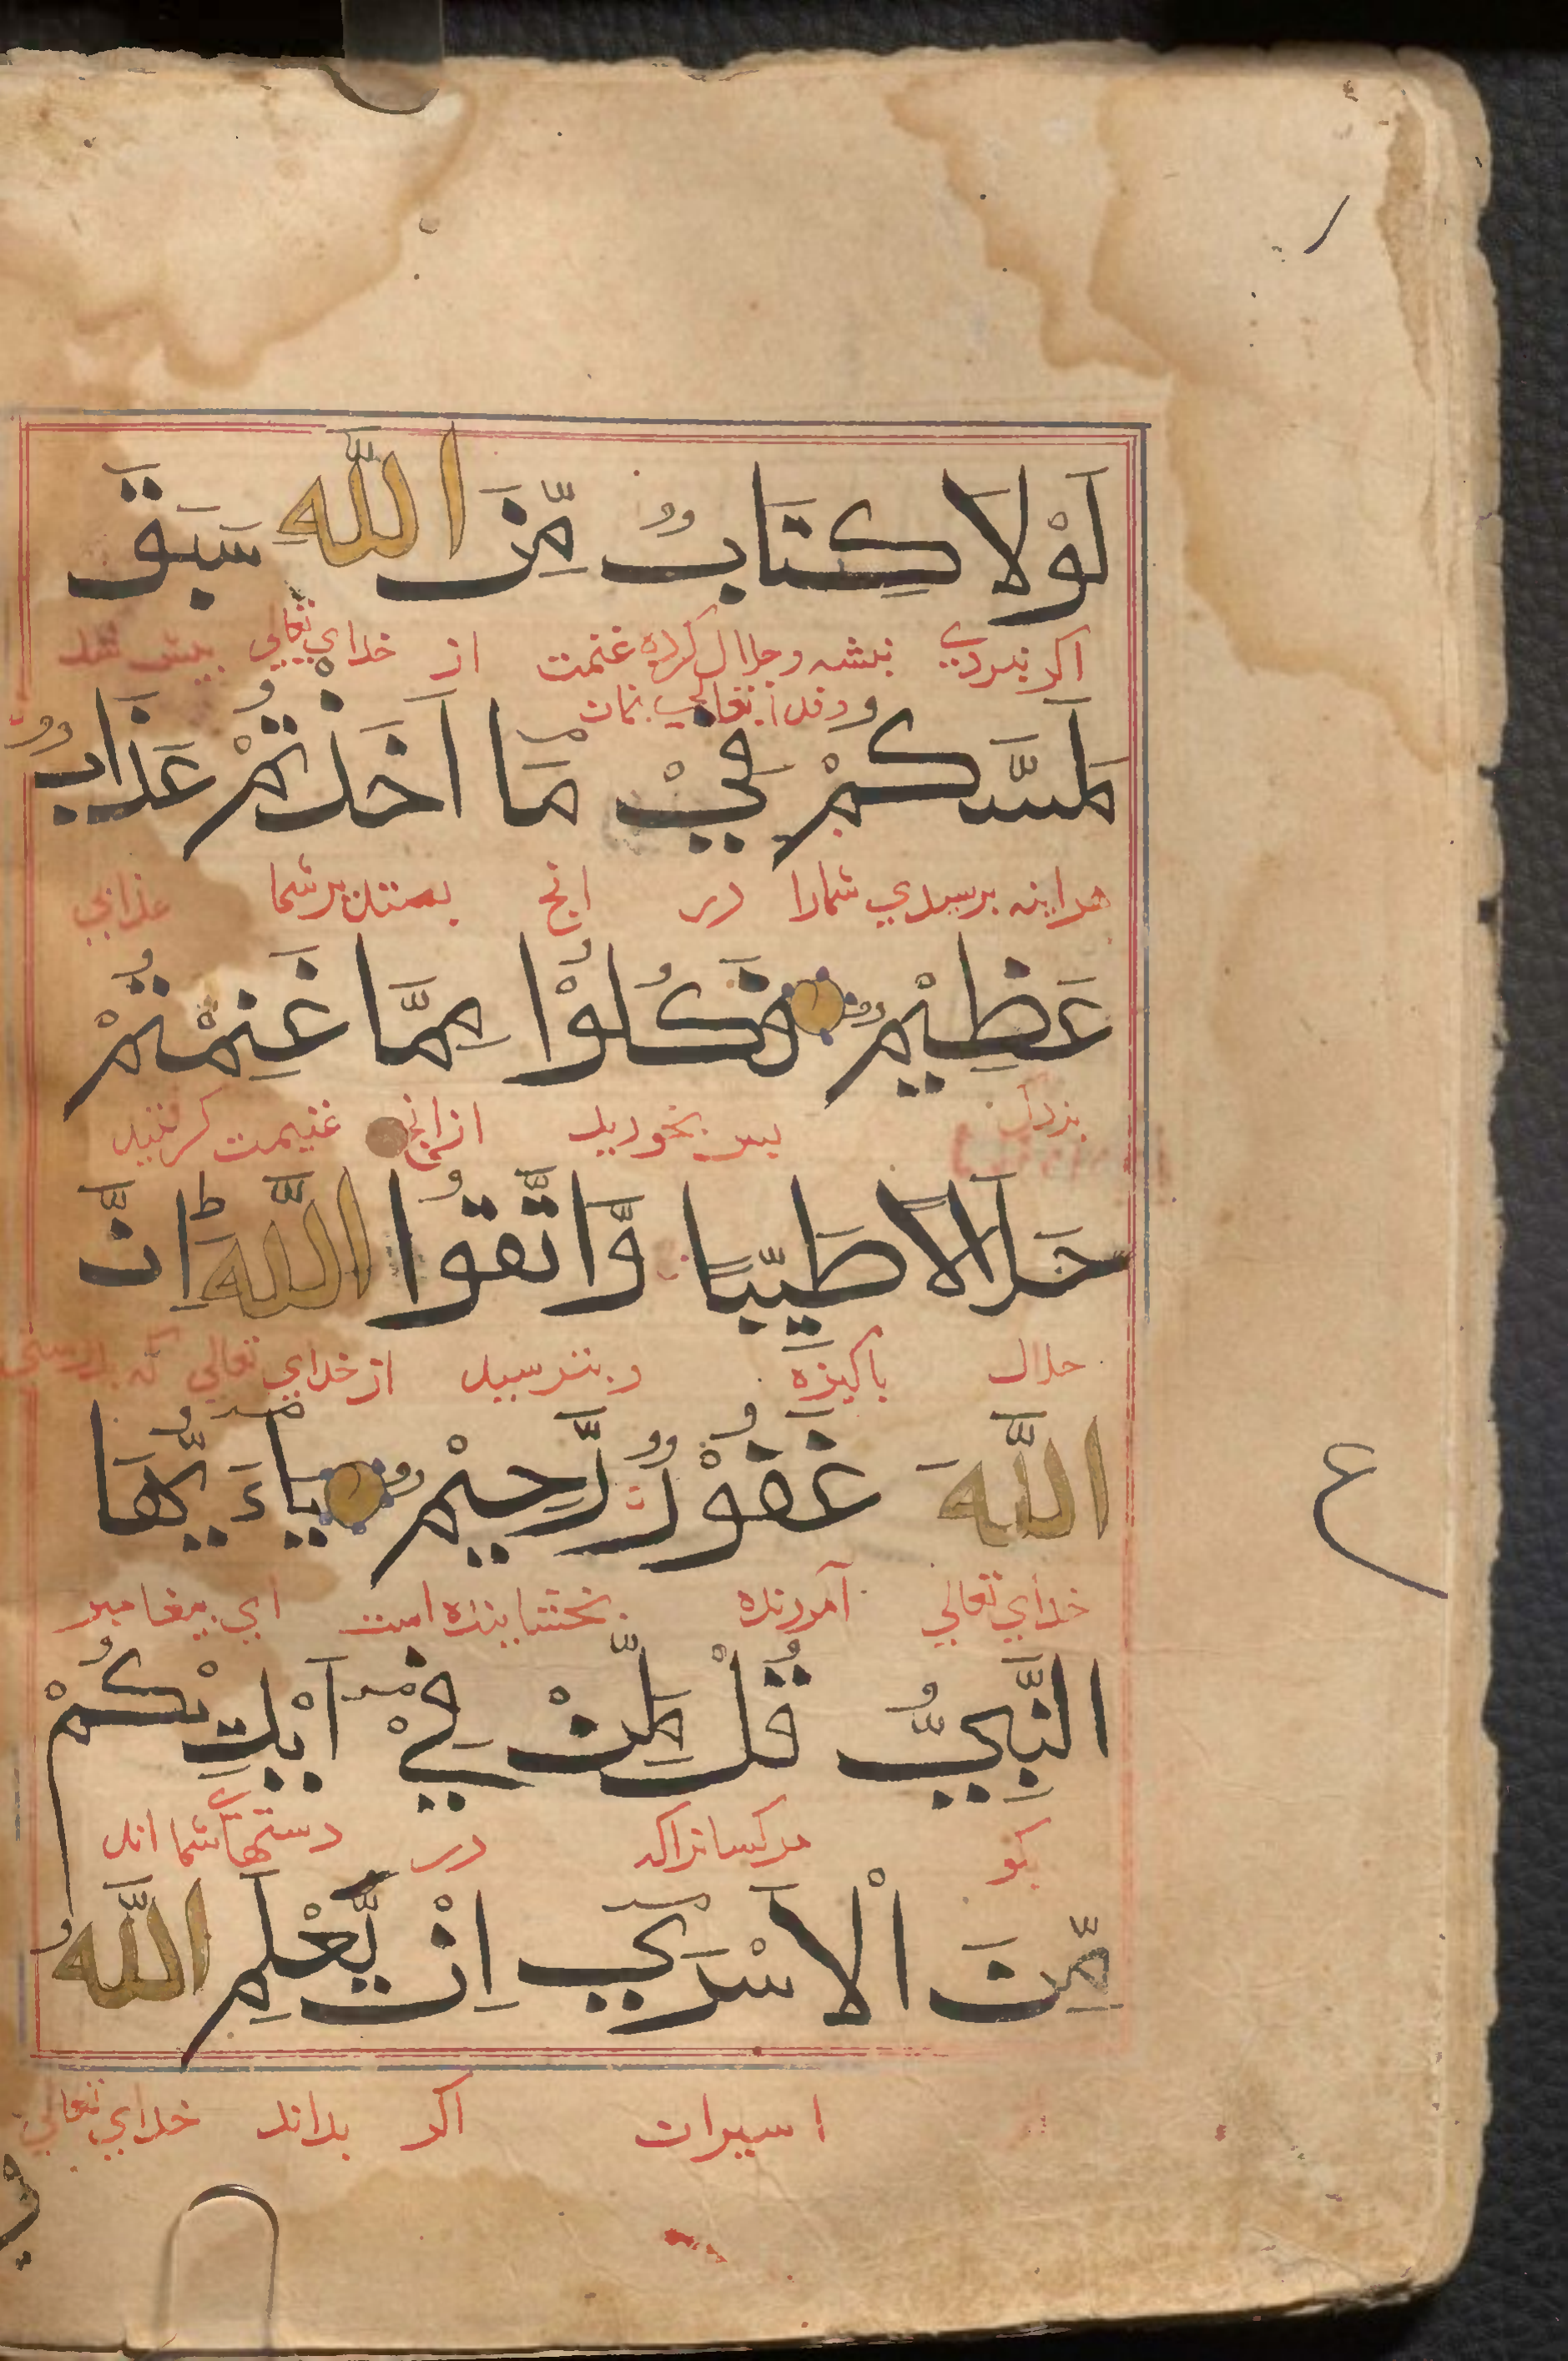 لَوْلَا كِتَابٌ مِّنَ اللّٰهِ سَبَقَ
اکر نبودی نبشته و حلال کرده غنمت از خدای تعالی بیش شد
لَمَسَّكُمْ فِيْ مَآ اَخَذْتُمْ عَذَابٌ
هراینه برسیدي شمارا در انچ بستدن برشما عذابي
عَظِيْمٌ فَكُلُوْا مِمَّا غَنِمْتُمْ
بزرك بس بخوريد از انچ غنيمت كرفتيد
حَلَالًا طَيِّبًا وَّاتَّقُوا اللّٰهَ ط اِنَّ
حلال باكيزه و بترسيد از خداي تعالي كه بدرستي
اللّٰهَ غَفُوْرٌ رَّحِيْمٌ يَآءَيُّهَا
خداي تعالي آمرزنده بخشاينده است اي بيغامبر
النَّبِيُّ قُلْ لِّمَنْ فِيْٓ اَيْدِيْكُمْ
بكو مركسانراكه در دستهاي شما اند
مِّنَ الْاَسْرٰٓي اِنْ يَّعْلَمِ اللّٰهُ
اسيران اكر بداند خداي تعالي
ع
في